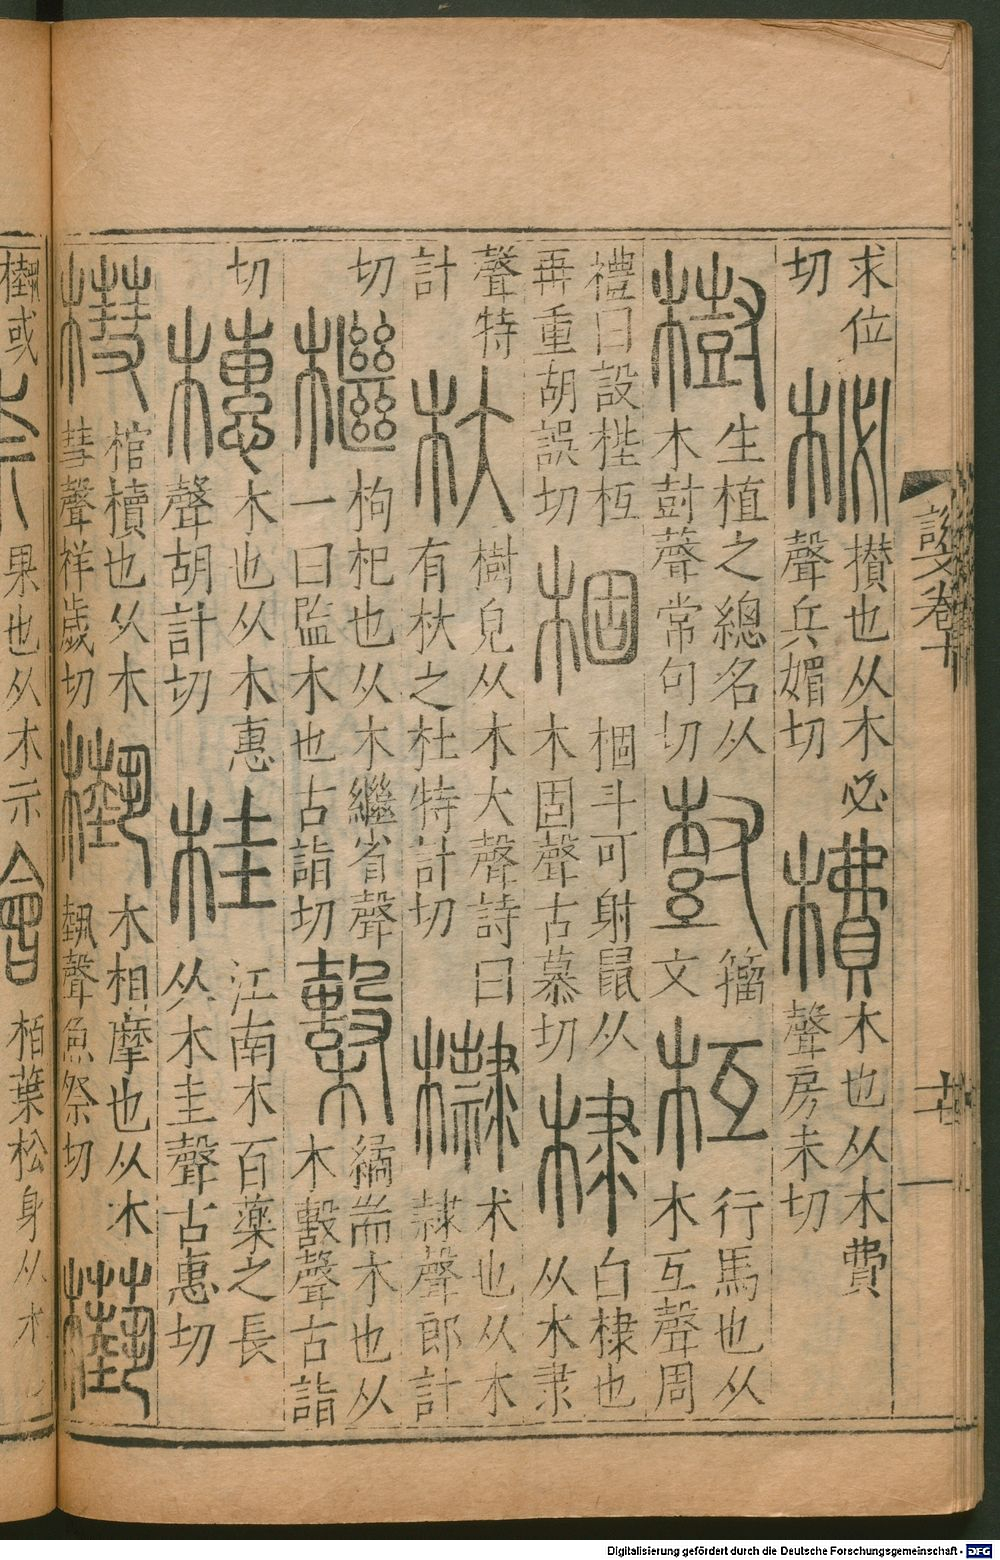 說文卷十
求位
切
柲
欑也从木必
聲兵媚切
㯕
木也从木費
聲房未切
樹
生植之總名从
木尌聲常句切
籀
文
枑
行馬也从
木互聲周
禮曰設梐枑
再重胡誤切
棝
棝斗可射鼠从
木固聲古慕切
棣
白棣也
从木隶
聲特
計
杕
樹皃从木大聲詩曰
有杕之杜特計切
木也从木
隸聲郎計
切
檵
枸杞也从木繼省聲
一曰監木也古詣切
繘耑木也从
木毄聲古詣
切
橞
木也从木惠
聲胡計切
桂
江南木百藥之長
从木圭聲古惠切
槥
棺櫝也从木
彗聲祥歲切
槸
木相摩也从木
埶聲魚祭切
槸或
柰
果也从木示
檜
栢葉松身从木
Digitalisierung gefördert durch die Deutsche Forschungsgemeinschaft - DFG